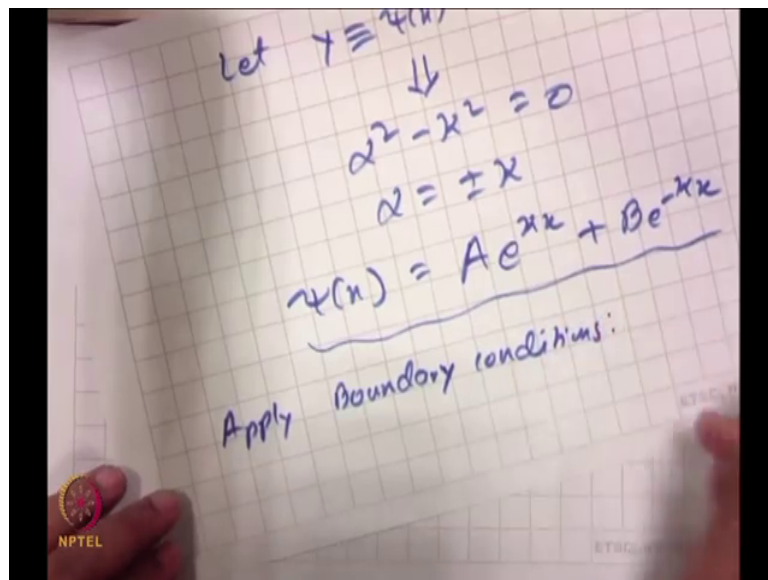 Let y ≡ ψ(x)
⇓
α² - χ² = 0
α = ± χ
ψ(x) = A e^{χx} + B e^{-χx}
Apply Boundary conditions:
NPTEL